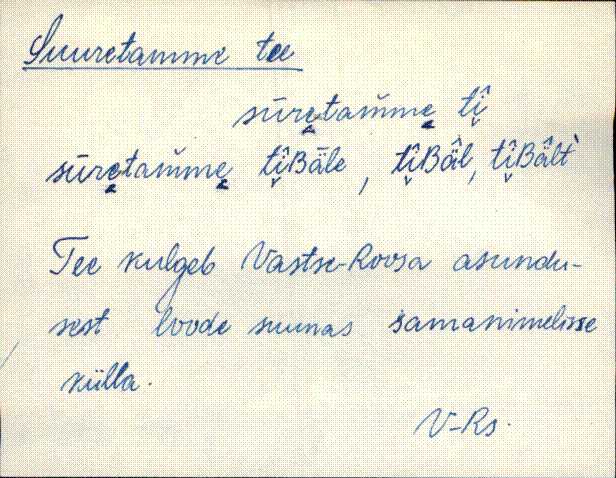 Suuretamme tee
sūre̬tam̆me̬ tî̬
sūre̬tam̆me̬ tî̬Bäle, tî̬Bä̂l, tî̬Bä̂lt̀
Tee kulgeb Vastse-Roosa asundu-
sest loode suunas samanimelisse
külla.
V-Rs.